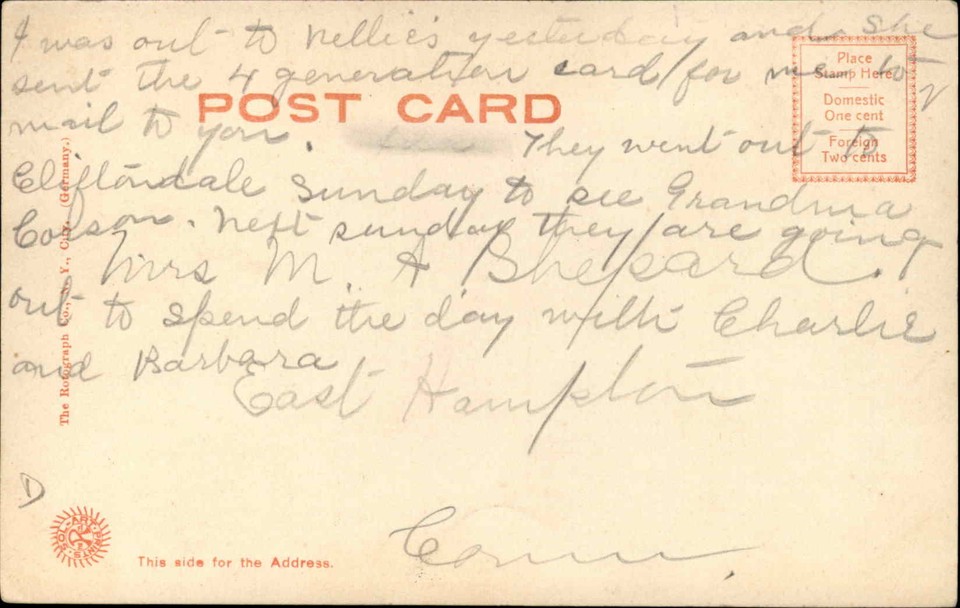 I was out to Nellie's yesterday and She
sent the 4 generation card for me to
mail to you. They went out to
Cliftondale Sunday to see Grandma
Corson. Next sunday they are going
Mrs M. A Shepard.
out to spend the day with Charlie
and Barbara
East Hampton
Conn.
POST CARD
Place
Stamp Here
Domestic
One cent
Foreign
Two cents
The Rotograph Co., N. Y., City. (Germany.)
D
SOL-ART PRINTS
This side for the Address.